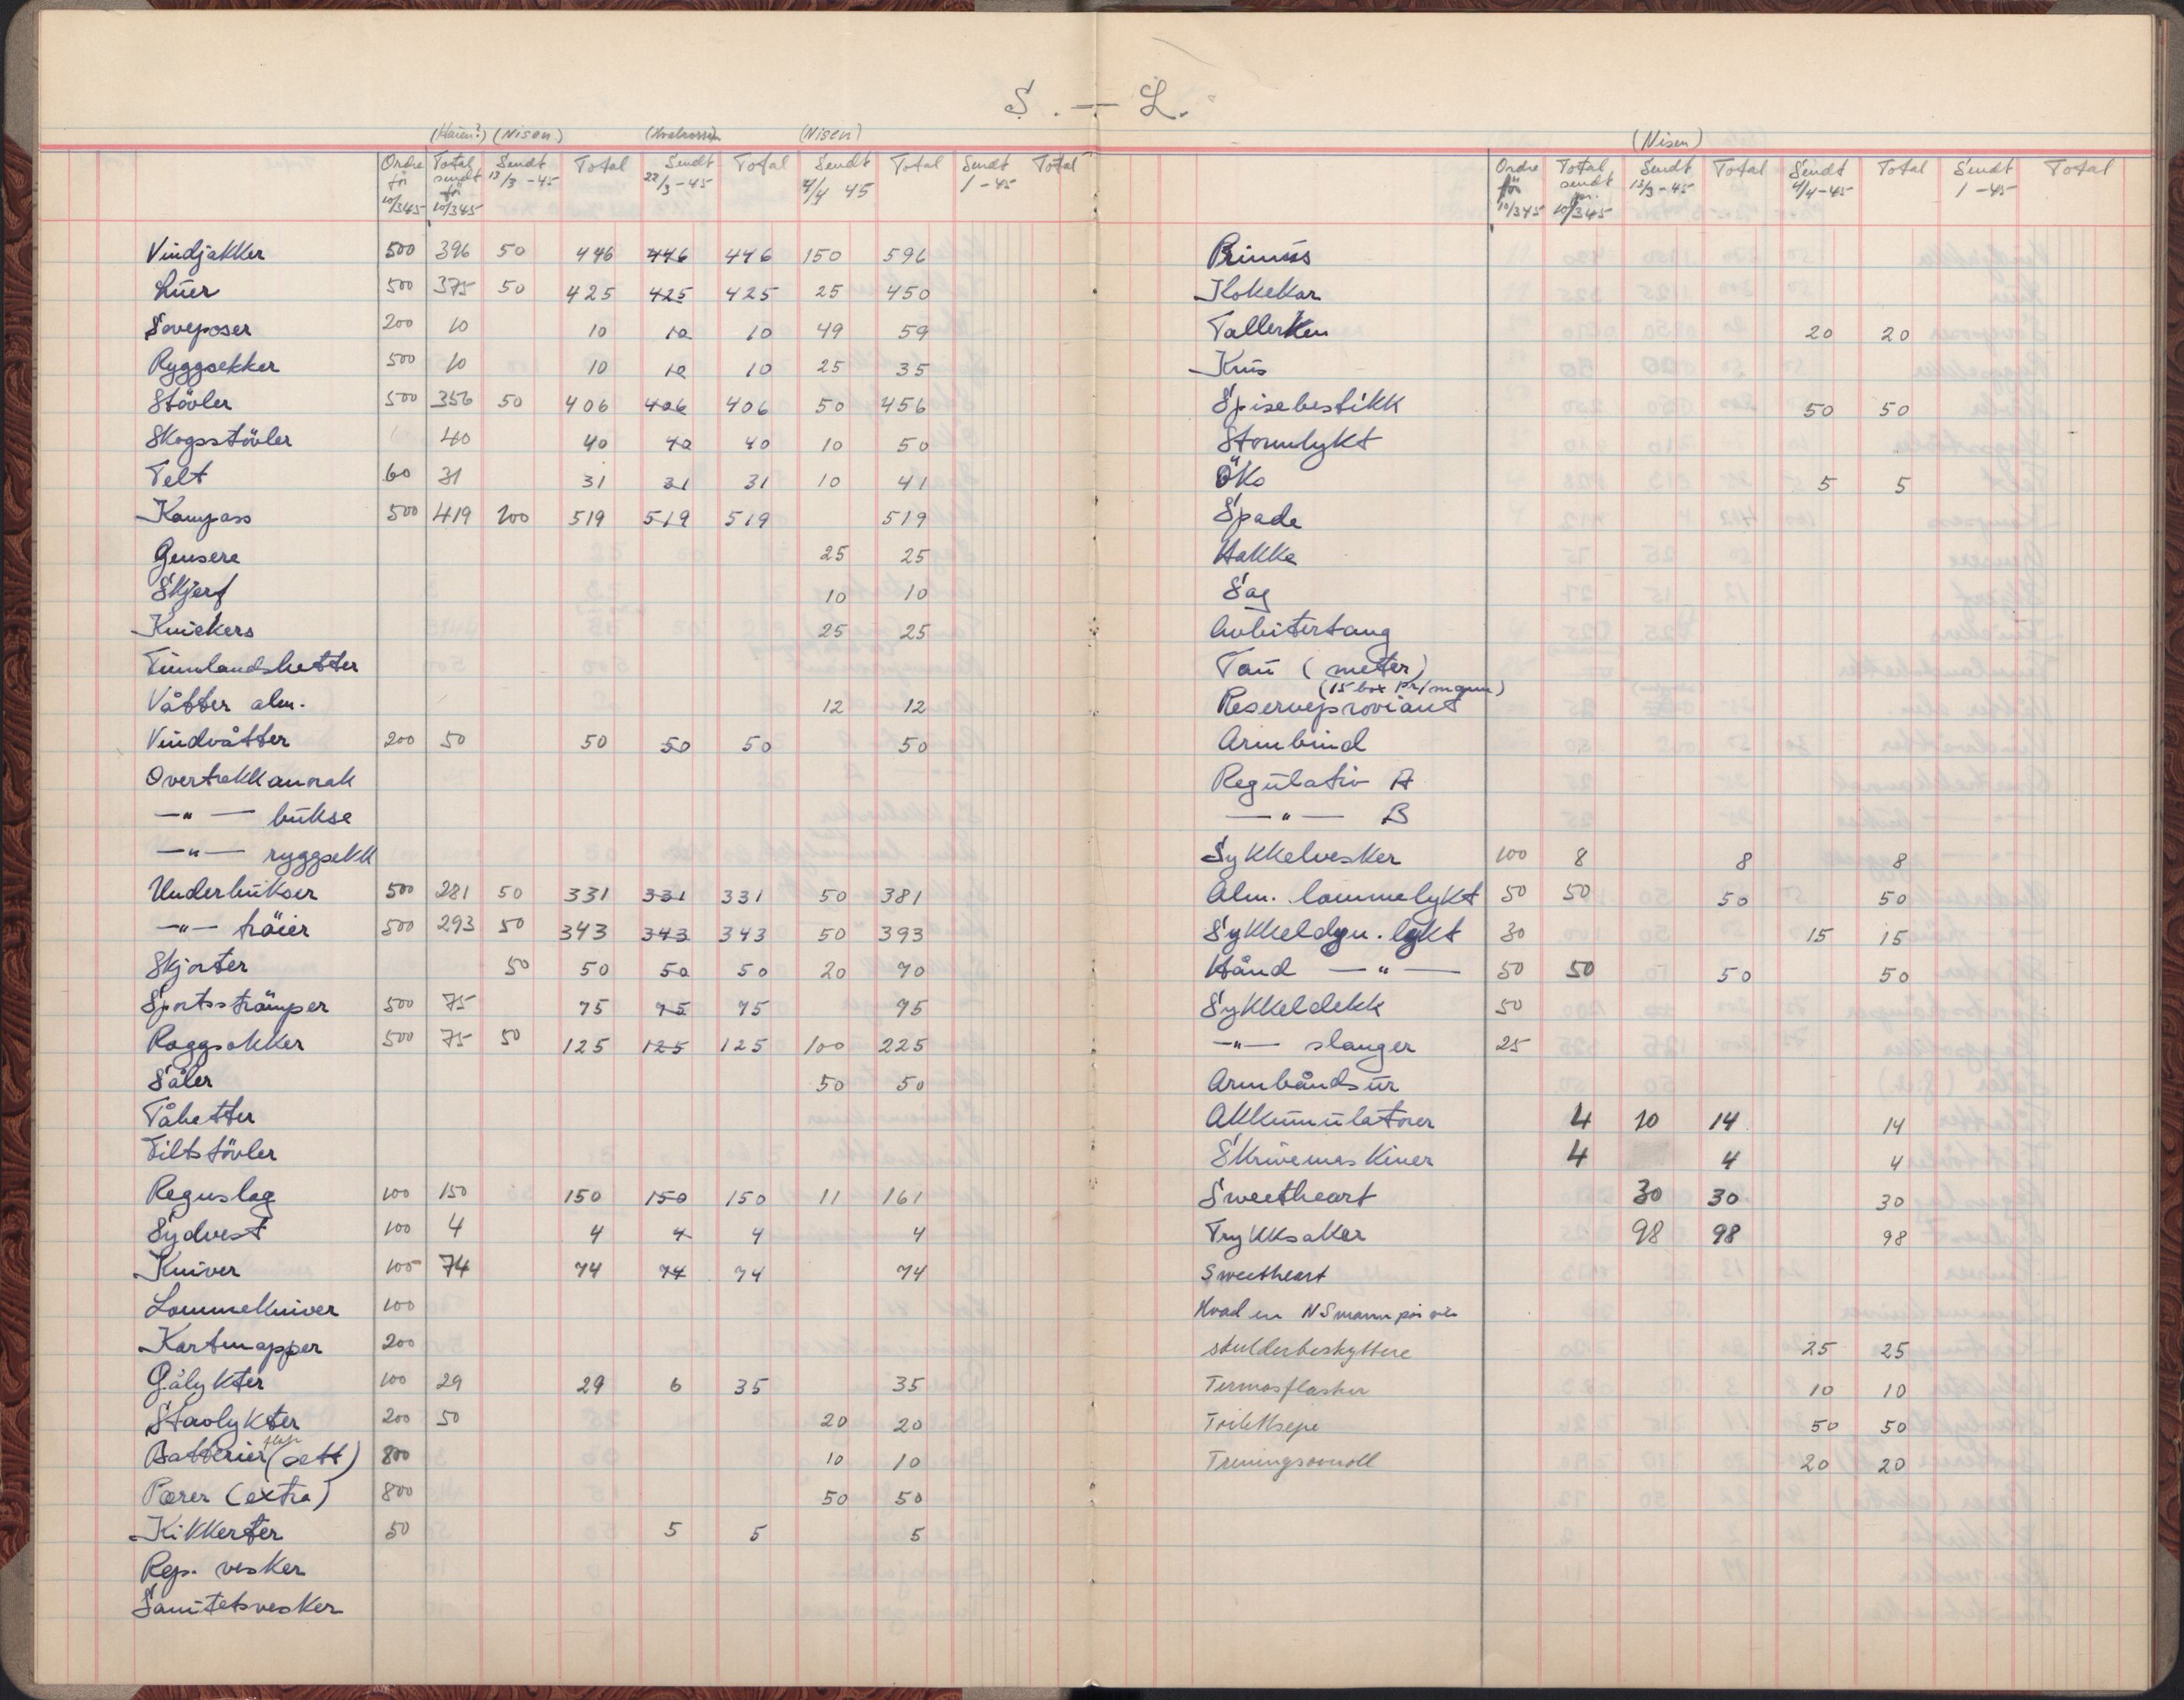 S. — L.
(Haien?) (Nisen) (Nisen)
Ordre för 10/3 45 Total sendt för 10/3 45 Sendt 13/3 -45 Total Sendt 22/3 -45 Total Sendt 4/4 45 Total Sendt / -45 Total
Vindjakker 500 396 50 446 446 446 150 596
Luer 500 375 50 425 425 425 25 450
Soveposer 200 10 10 10 10 49 59
Ryggsekker 500 10 10 10 10 25 35
Stövler 500 356 50 406 406 406 50 456
Skogsstövler 40 40 40 40 10 50
Telt 60 31 31 31 31 10 41
Kompass 500 419 100 519 519 519 519
Gensere 25 25
Skjerf 10 10
Knickers 25 25
Finnlandshetter
Våtter alm. 12 12
Vindvåtter 200 50 50 50 50 50
Overtrekkanorak
—"— bukse
—"— ryggsekk
Underbukser 500 281 50 331 331 331 50 381
—"— tröier 500 293 50 343 343 343 50 393
Skjorter 50 50 50 50 20 70
Sportsströmper 500 75 75 75 75 75
Raggsokker 500 75 50 125 125 125 100 225
Såler 50 50
Tåhetter
Filtstövler
Regnslag 100 150 150 150 150 11 161
Sydvest 100 4 4 4 4 4
Kniver 100 74 74 74 74 74
Lommekniver 100
Kartmapper 200
Gålykter 100 29 29 6 35 35
Stavlykter 200 50 20 20
Batterier (sett) 800 10 10
Pærer (extra) 800 50 50
Kikkerter 50 5 5 5
Rep. vesker
Sanitetsvesker
(Nisen)
Ordre för 10/3 45 Total sendt för 10/3 45 Sendt 13/3 -45 Total Sendt 4/4 -45 Total Sendt / -45 Total
Primus
Kokekar
Tallerken 20 20
Krus
Spisebestikk 50 50
Stormlykt
Öks 5 5
Spade
Hakke
Sag
Avbitertang
Tau (meter)
(15 box pr/mann)
Reserveproviant
Armbind
Regulativ A
—"— B
Sykkelvesker 100 8 8 8
Alm. lommelykt 50 50 50 50
Sykkeldyn. lykt 30 15 15
Hånd —"— 50 50 50 50
Sykkeldekk 50
—"— slanger 25
Armbåndsur
Akkumulatorer 4 10 14 14
Skrivemaskiner 4 4 4
Sweetheart 30 30 30
Trykksaker 98 98 98
Sweetheart
Hvad en NS mann
skulderbeskyttere 25 25
Termosflasker 10 10
Toilettsepe 50 50
Treningsoverall 20 20